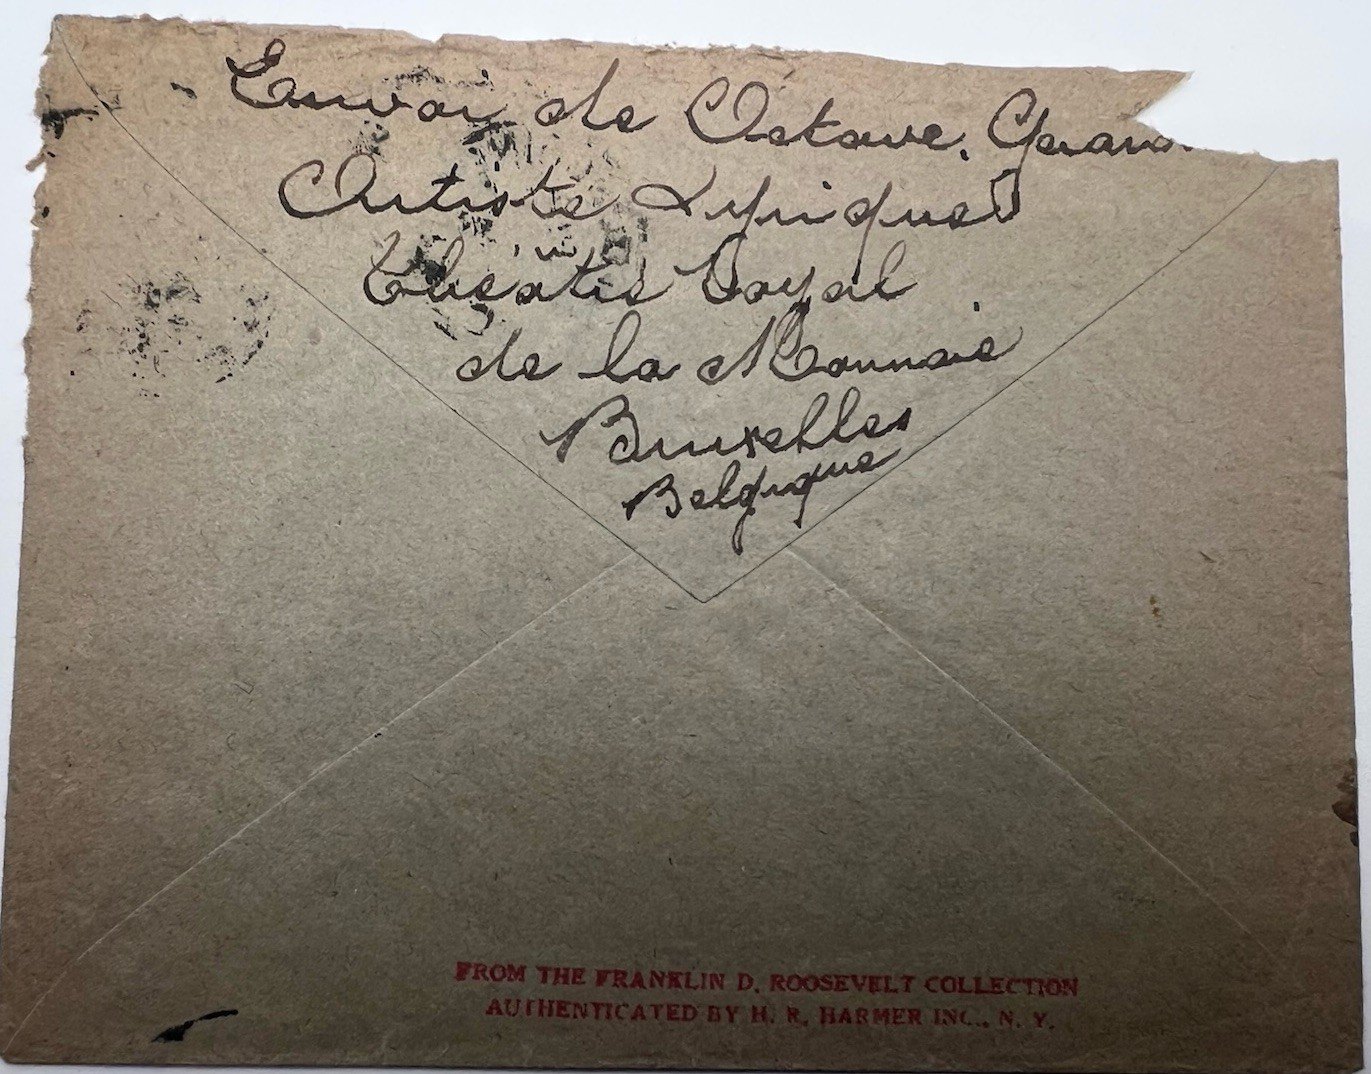 Envoi de Octave Gérard
Artiste Lyrique
Théatre Royal
de la Monnaie
Bruxelles
Belgique
FROM THE FRANKLIN D. ROOSEVELT COLLECTION
AUTHENTICATED BY H. R. HARMER INC., N. Y.